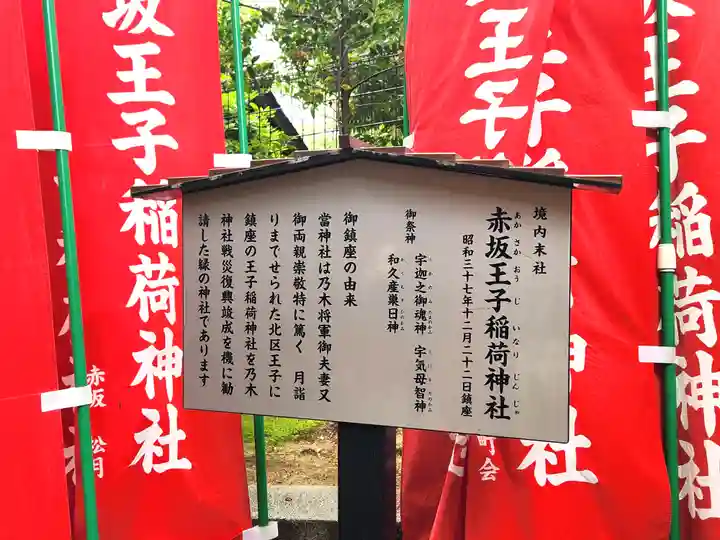 境内末社
赤坂王子稲荷神社
あかさかおうじいなりじんじゃ
昭和三十七年十二月二十二日鎮座
御祭神
宇迦之御魂神 宇気母智神
和久産巣日神
御鎮座の由来
當神社は乃木将軍御夫妻又
御両親崇敬特に篤く 月詣
りまでせられた北区王子に
鎮座の王子稲荷神社を乃木
神社戦災復興竣成を機に勧
請した縁の神社であります
坂王子稲荷神社
赤坂 松月
王子稲
神社
町会
王子稲荷神社